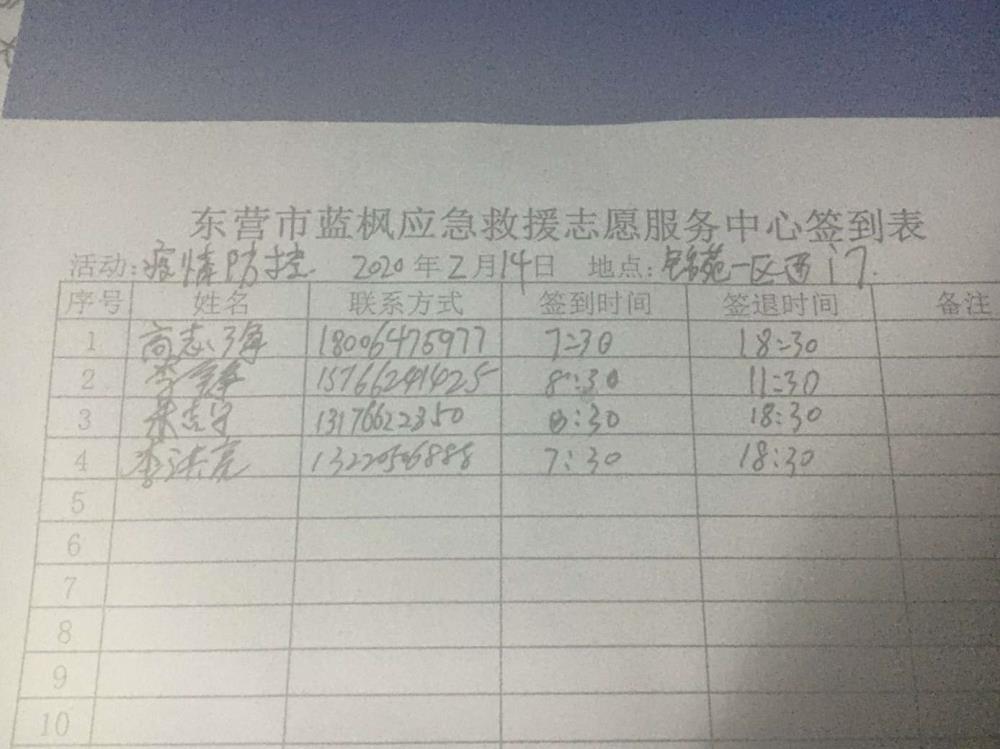 东营市蓝枫应急救援志愿服务中心签到表
活动:疫情防控 2020年2月14日 地点:锦苑一区西门
序号 姓名 联系方式 签到时间 签退时间 备注
1 高志强 18006476977 7:30 18:30
2 李 15766241425 8:30 11:30
3 朱志 13176622350 8:30 18:30
4 李洪亮 13220506888 7:30 18:30
5
6
7
8
9
10